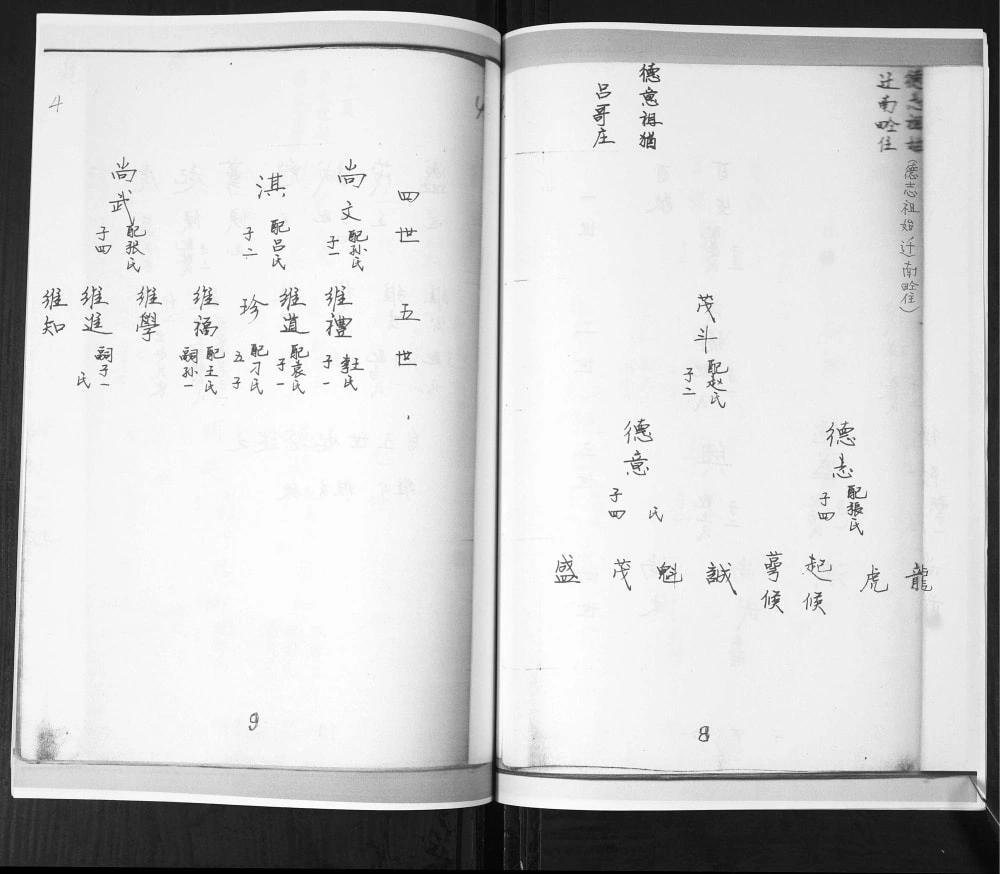 德志祖始
迁南畛住
(德志祖始迁南畛住)
德意祖猶
吕哥庄
茂斗
配赵氏
子二
德志
配張氏
子四
德意
氏
子四
龍
虎
起候
萼候
誠
魁
茂
盛
8
四世
尚文
配孙氏
子一
淇
配吕氏
子二
尚武
配张氏
子四
五世
維禮
李王氏
子一
維道
配袁氏
子一
珍
配刁氏
五子
維福
配王氏
嗣孙一
維學
維進
嗣子一
氏
維知
4
9